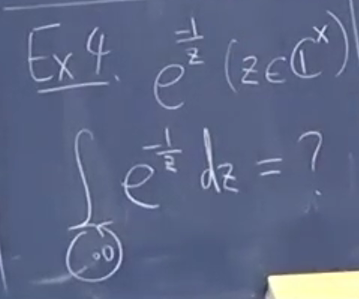 Ex 4. e^{-1/z} (z∈ℂ^×)
∫_{↺·0} e^{-1/z} dz = ?